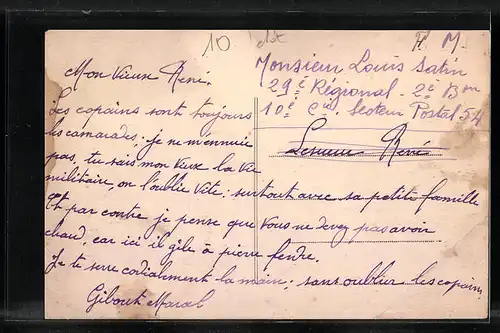 10
F. M.
Monsieur Louis Satin
29e Régional - 2e Bon
10e Cie. Secteur Postal 54
Lesueur René
Mon Vieux René.
Les copains sont toujours
les camarades; je ne m'ennuie
pas, tu sais mon vieux la vie
militaire, on l'oublie vite; surtout avec sa petite famille
Et par contre je pense que vous ne devez pas avoir
chaud, car ici il gèle à pierre fendre.
Je te serre cordialement la main; sans oublier les copains,
Gibout Marcel